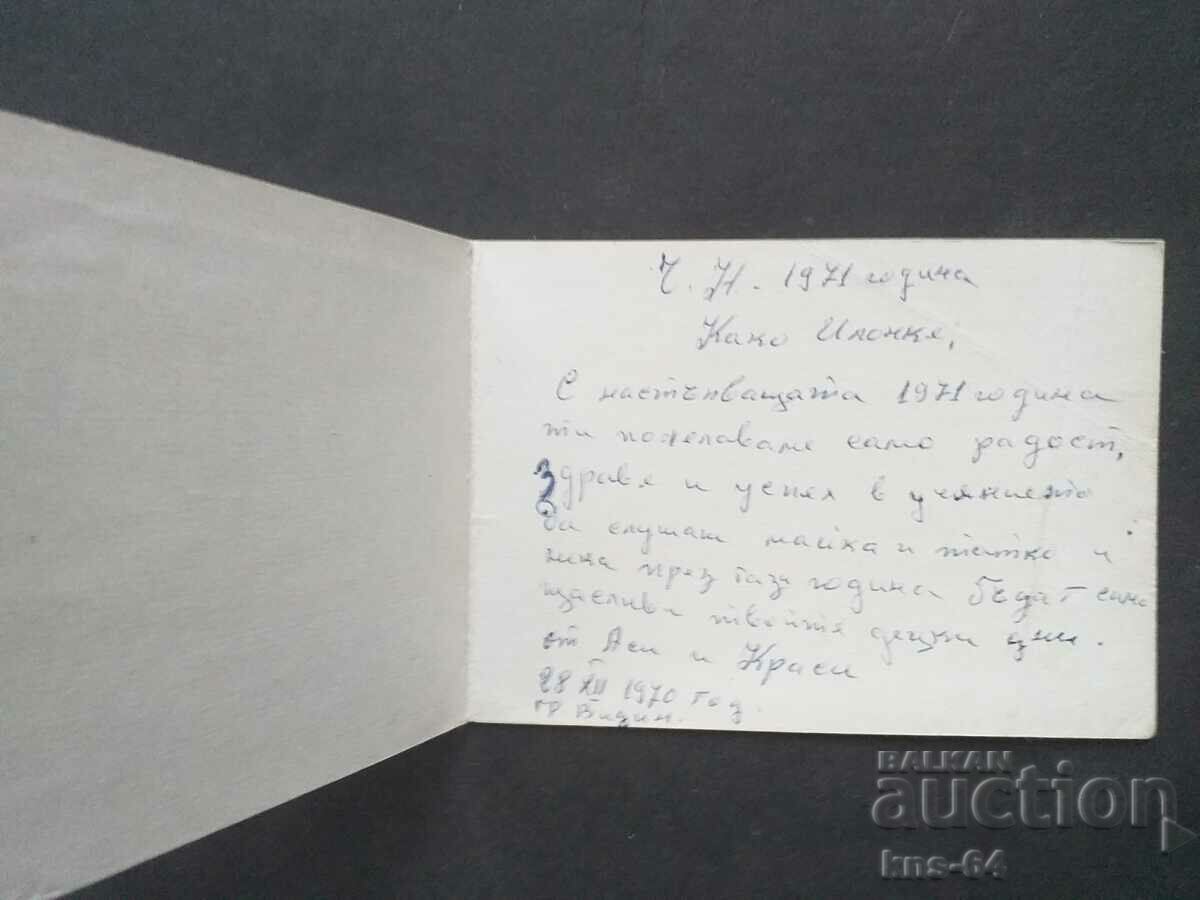 Ч. Н. 1971 година
Како Илонке,
С настъпващата 1971 година
ти пожелаваме само радост,
здраве и успех в учението
да слушаш майка и татко и
нека през тази година бъдат само
щастливи твойте дни.
от Аси и Краси
28 XII 1970 год.
гр Видин.
BALKAN
auction
kns-64